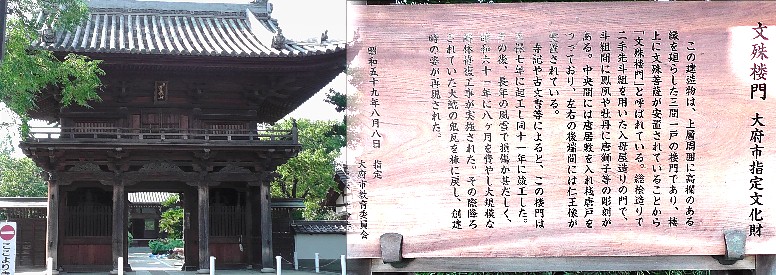 文殊楼門 大府市指定文化財
この建造物は、上層周囲に高欄のある
縁を廻らした三間一戸の楼門であり、楼
上に文殊菩薩が安置されていることから
「文殊楼門」と呼ばれている。総桧造りで
二手先斗組を用いた入母屋造りの門で、
斗組間に鳳凰や牡丹に唐獅子等の彫刻が
ある。中央間には唐居敷を入れ桟唐戸を
つっており、左右の後端間には仁王像が
安置されている。
寺記や古文書等によると、この楼門は
七年に起工し同十一年に竣工した。
その後、長年の風雪で損傷が甚だしく、
昭和六十一年に八ヶ月を費やし大規模な
解体修復工事が実施された。その際降ろ
されていた大鯱の鬼瓦を棟に戻し、創建
時の姿が再現された。
昭和五十九年八月八日 指定
大府市教育委員会
ここより